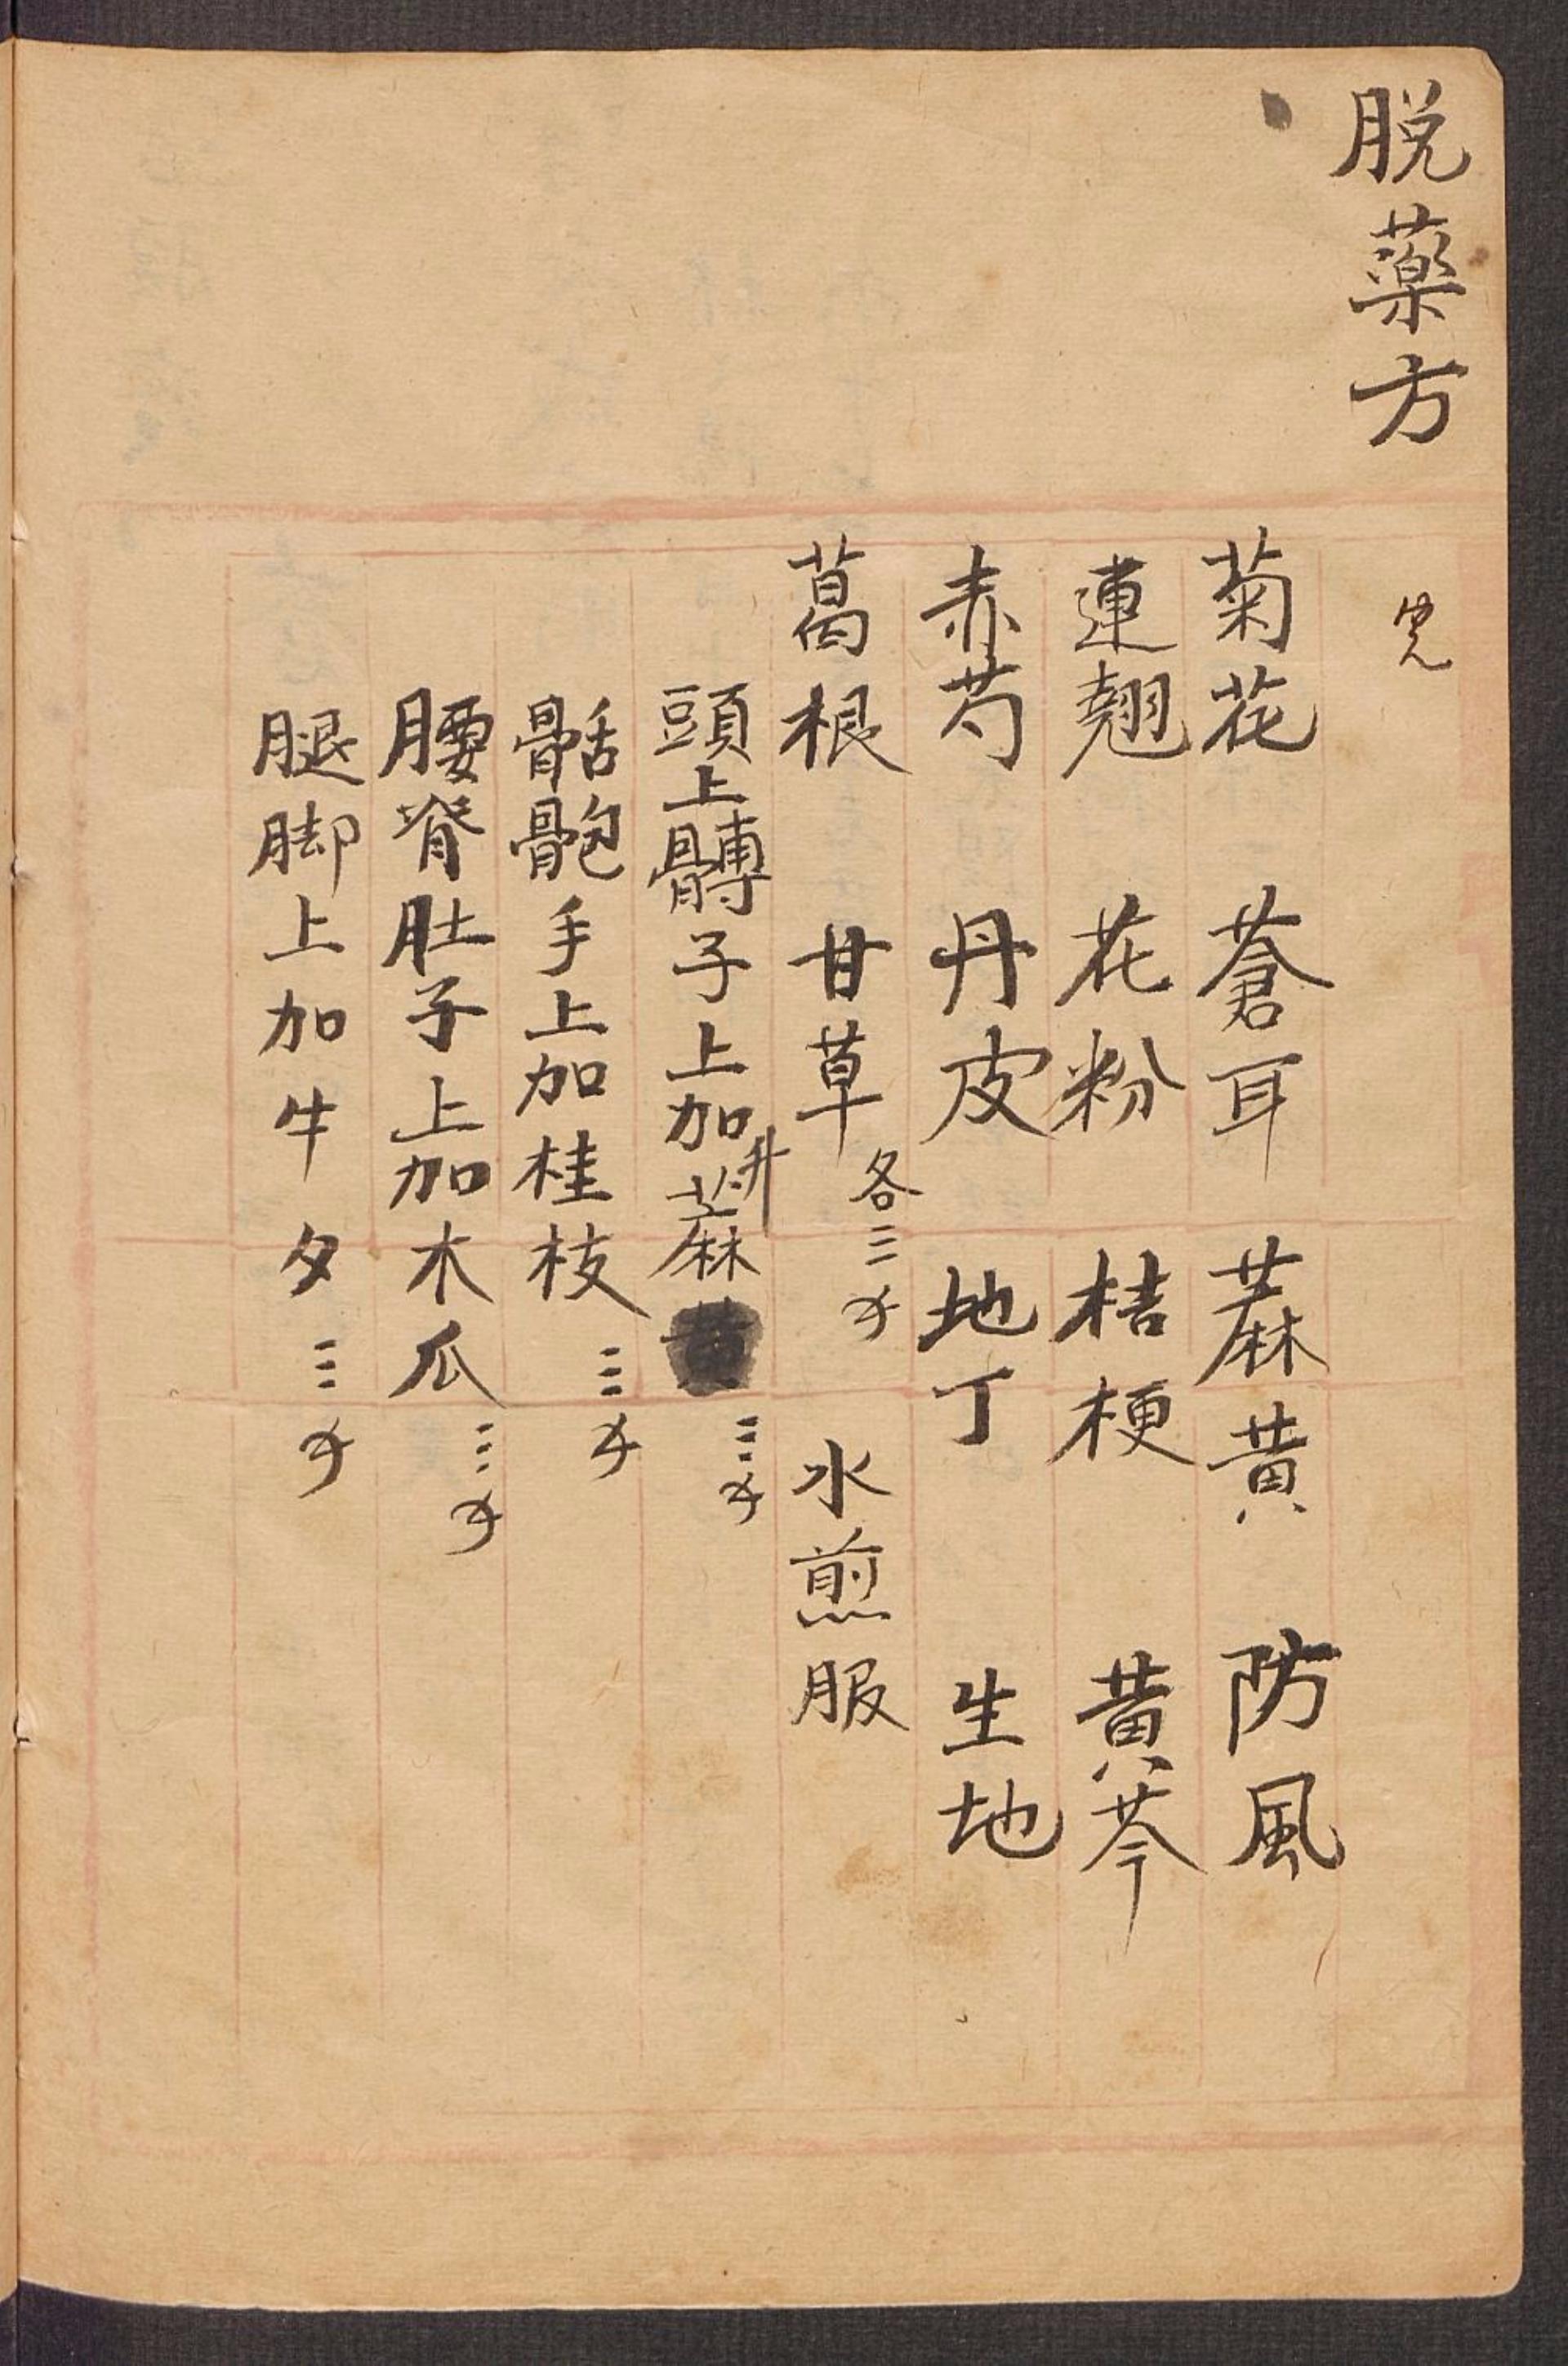 脱薬方
菊花 蒼耳 蔴黄 防風
連翹 花粉 桔梗 黄芩
赤芍 丹皮 地丁 生地
葛根 甘草 各三 水煎服
頭上髆子上加升蔴 三
骷骲手上加桂枝 三
腰脊肚子上加木瓜 三
腿脚上加牛夕 三